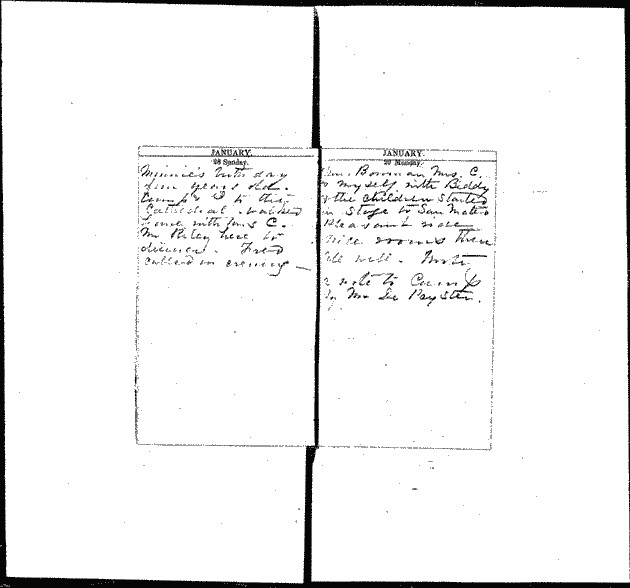 JANUARY.
28 Sunday.
Minnie's birth day
years old.
& I to the
Cathedral walked
home with Mrs C.
Mr Riley here to
dinner. Fred
called in evening —
JANUARY.
29 Monday.
Bowman, Mrs. C.
myself with Biddy
the children started
in Stage to San Mateo
Pleasant ride
nice rooms then
all well. Wrote
a note to Camp
by Mr De Peyster.